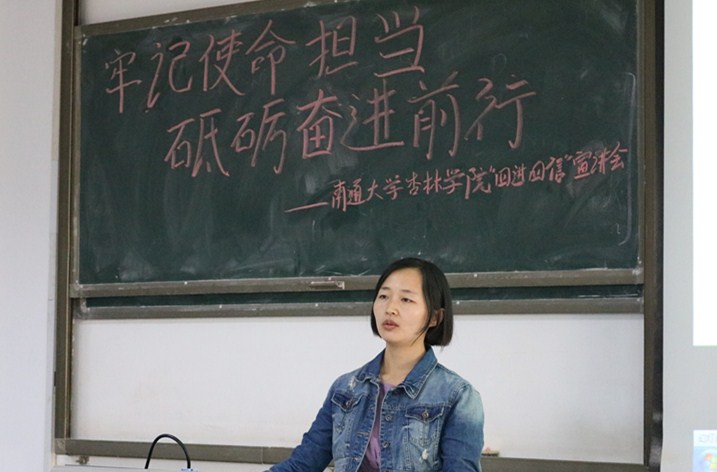 牢记使命担当
砥砺奋进前行
——南通大学杏林学院“四进四信”宣讲会